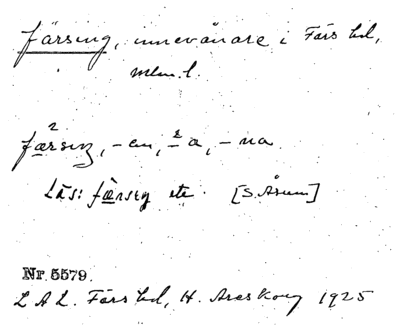 färsing, innevånare i Färs hd,
mlm. l.
fæ²rsiŋ, -en, -²a, -na
Läs: færsiŋ etc. [S. Åsum]
Nr. 5579.
L A L. Färs hd, H. Areskog 1925